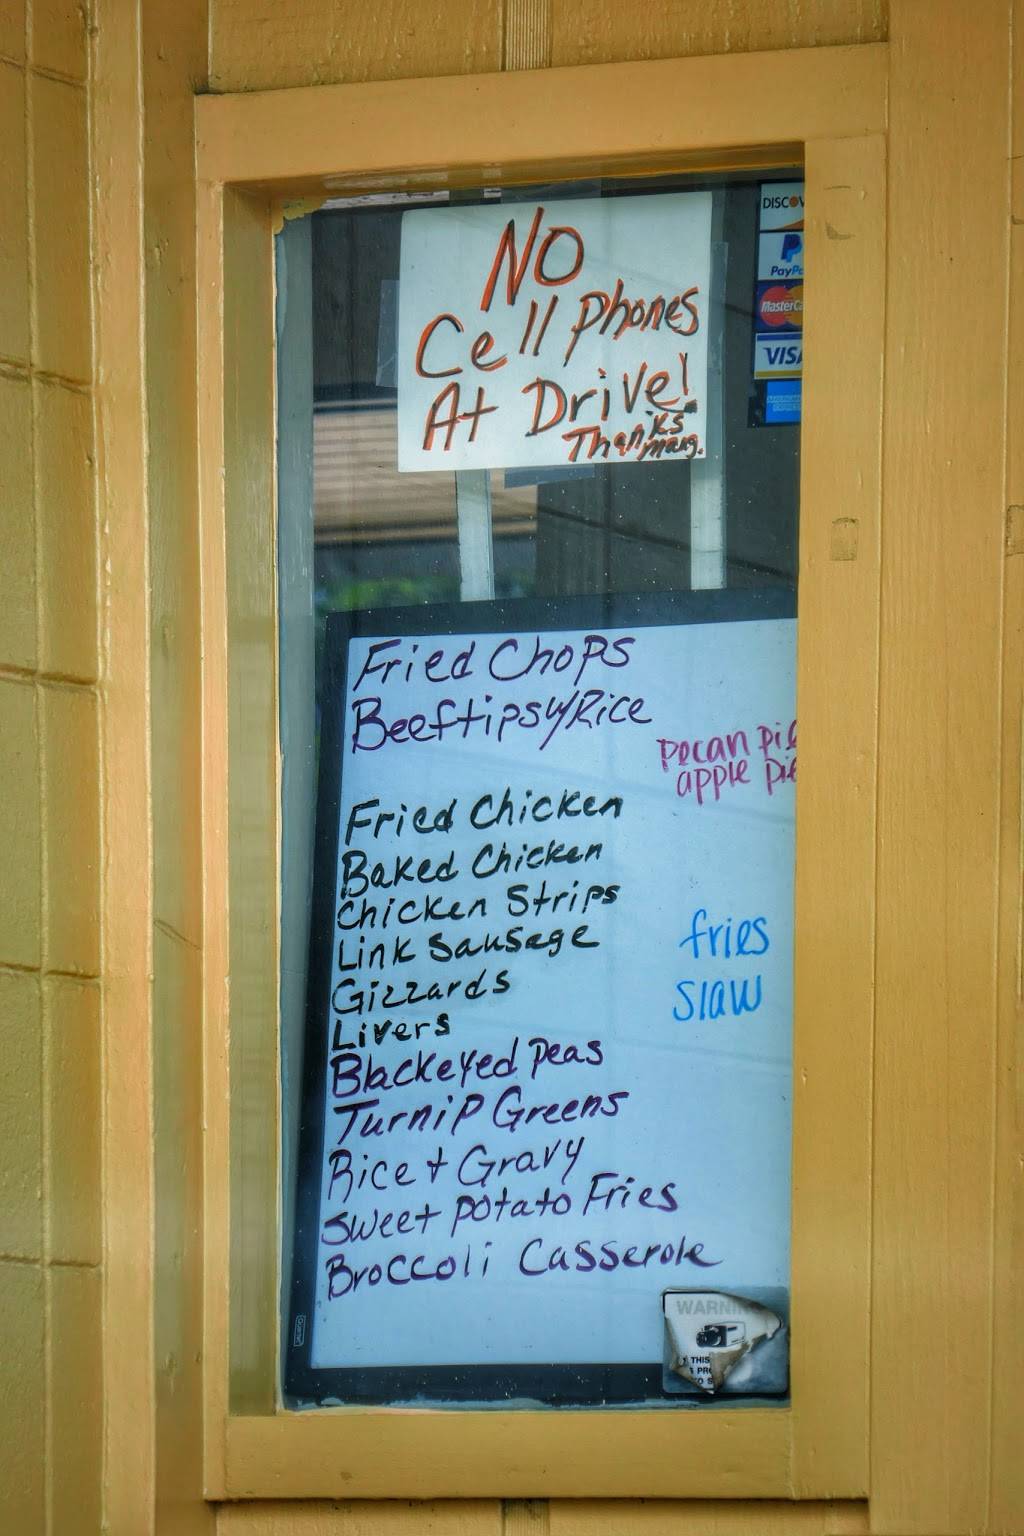 NO
Cell Phones
At Drive!
Thanks
Mang.
DISCOV
PayPa
MasterCa
VISA
Fried Chops
Beeftips w/Rice
pecan pie
apple pie
Fried Chicken
Baked Chicken
Chicken Strips
Link Sausage
fries
Gizzards
slaw
Livers
Blackeyed Peas
Turnip Greens
Rice + Gravy
Sweet Potato Fries
Broccoli Casserole
WARNING
THIS